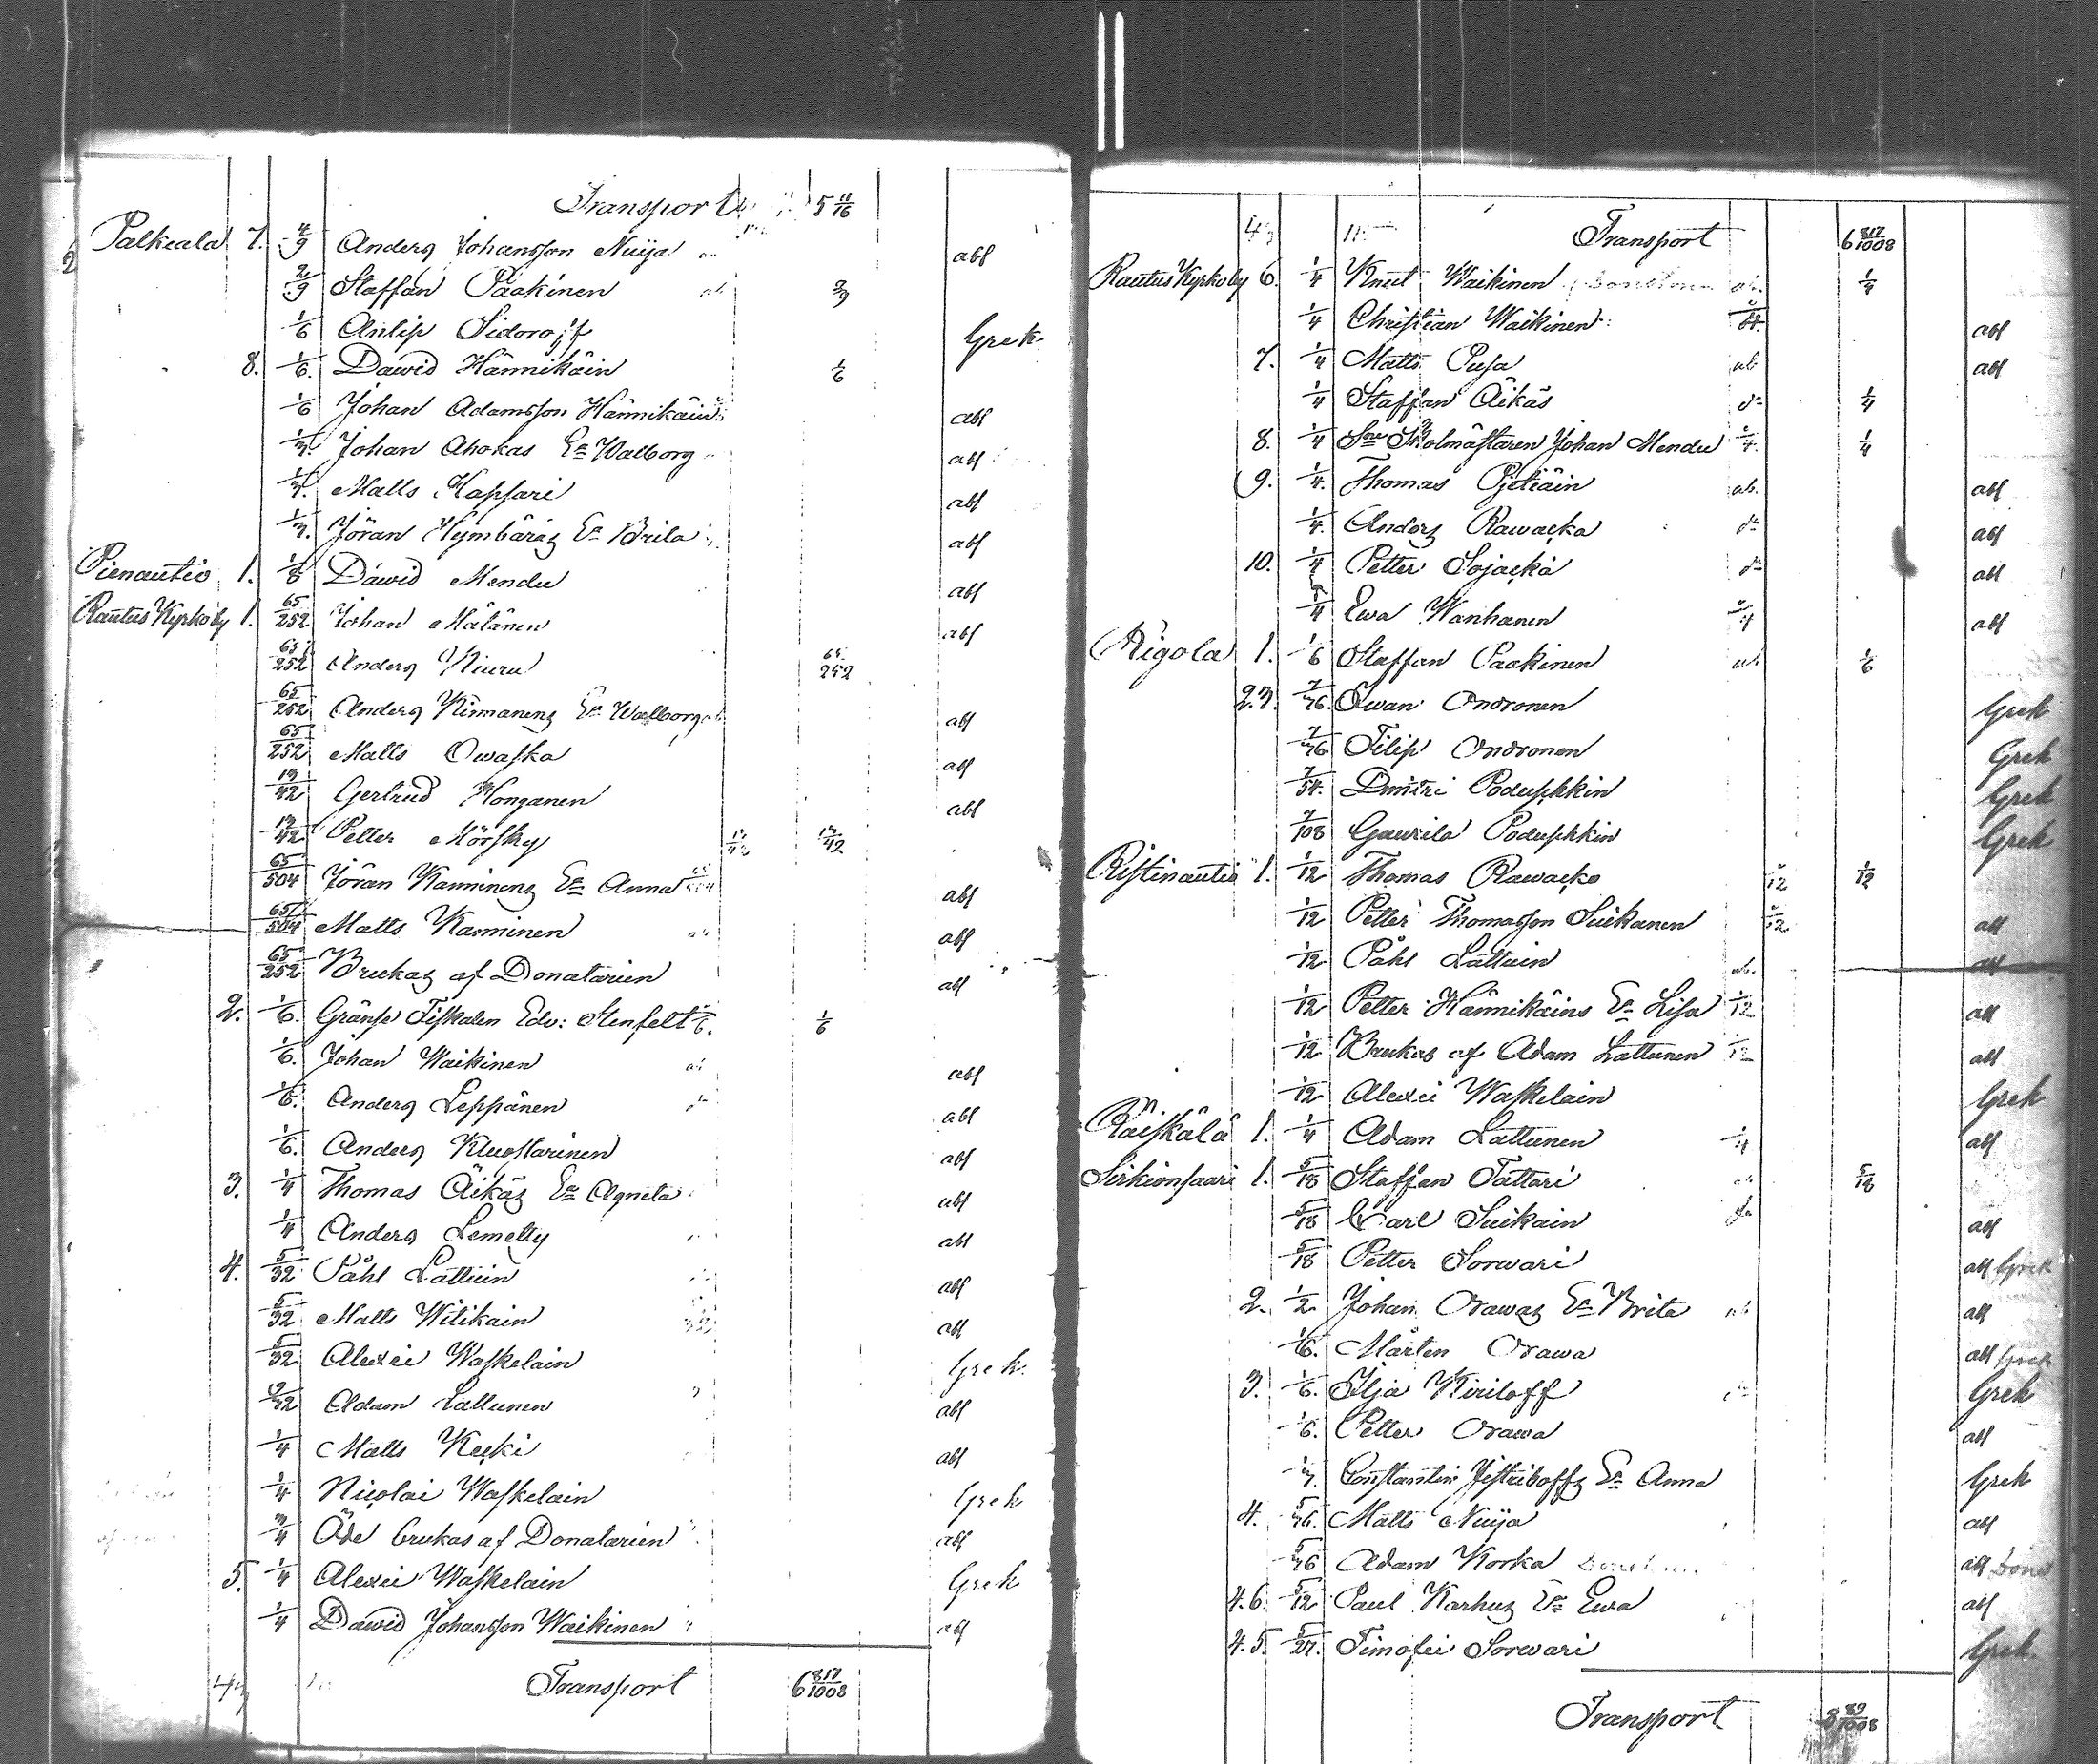 Transport 5 11/16
Palkeala 7. 4/9 Anders Johansson Nuija abs
2/9 Staffan Paakinen 2/9
1/6 Antip Sidoroff Grek.
8. 1/6. Dawid Hännikäin 1/6
1/6 Johan Adamsson Hännikäin abs
1/3. Johan Ahokas Ea Walborg abs
1/3. Matts Kapsari abs
1/3. Jöran Hymbärãz Ea Brita abs
Pienautio 1. 1/8 Dawid Mendu abs
Rautus Kyrkoby 1. 65/252 Johan Mälänen abs
65/252 Anders Kiuru 65/252
65/252 Anders Kinnanens Ea Walborg abs
65/252 Matts Owaska abs
13/42 Gertrud Honganen abs
13/42 Petter Mörsky 13/42 13/42
65/504 Jöran Kaminens Ea Anna 65/504 abs
65/504 Matts Kaminen abs
65/252 Brukas af Donatarien abs
2. 1/6. Gränse Fiskalen Edv: Stenfelt 1/6. 1/6
1/6. Johan Waikinen abs
1/6. Anders Leppänen abs
1/6. Anders Kluostarinen abs
3. 1/4 Thomas Äikäs Ea Agneta abs
1/4 Anders Lemetty abs
4. 5/32 Påhl Lattuin abs
5/32 Matts Witikain abs
5/32 Alexei Waskelain Grek.
Adam Lattunen abs
1/4 Matts Kecki abs
1/4 Nicolai Waskelain Grek
3/4 Öde brukas af Donatarien abs
5. 1/4 Alexei Waskelain Grek
1/4 Dawid Johansson Waikinen abs
Transport 6 817/1008
Transport 6 817/1008
Rautus Kyrkoby 6. 1/4 Knut Waikinen 1/4
1/4 Christian Waikinen abs
7. 1/4 Matts Pusa abs
1/4 Staffan Äikäs 1/4
8. 1/4 Skolmästaren Johan Mendu 1/4. 1/4
9. 1/4. Thomas Pjetiäin abs
1/4. Anders Rawacka abs
10. 1/4 Petter Sojacka abs
1/4 Ewa Wanhanen abs
Rigola 1. 1/6 Staffan Paakinen 1/6
2.3. 7/36. Iwan Ondronen Grek
7/36 Filip Ondronen Grek
7/54. Dmitri Poduschkin Grek
7/108 Gawrila Poduschkin Grek
Ristinautio 1. 1/12 Thomas Rawacko 1/12 1/12
1/12 Petter Thomasson Suikanen 1/12 abs
1/12 Påhl Lattuin abs
1/12 Petter Hännikäins Ea Lisa 1/12 abs
1/12 Brukas af Adam Lattunen 1/12 abs
1/12 Alexei Waskelain Grek
Räiskälä 1. 1/4 Adam Lattunen 1/4 abs
Sirkiönsaari 1. 5/18 Staffan Tattari 5/18
5/18 Carl Suikain abs
5/18 Petter Sorwari abs Grek
2. 1/2. Johan Orawas Ea Brita abs
1/6. Mårten Orawa abs Grek
3. 1/6. Ilja Kiriloff Grek
1/6. Petter Orawa abs
1/3. Constantin Jestriboffs Ea Anna Grek
4. 5/36. Matts Nuija abs
5/36 Adam Korka abs
4.6. 5/12 Paul Karhus Ea Ewa abs
4.5. 5/27. Timofei Sorwari Grek.
Transport 8 89/1008